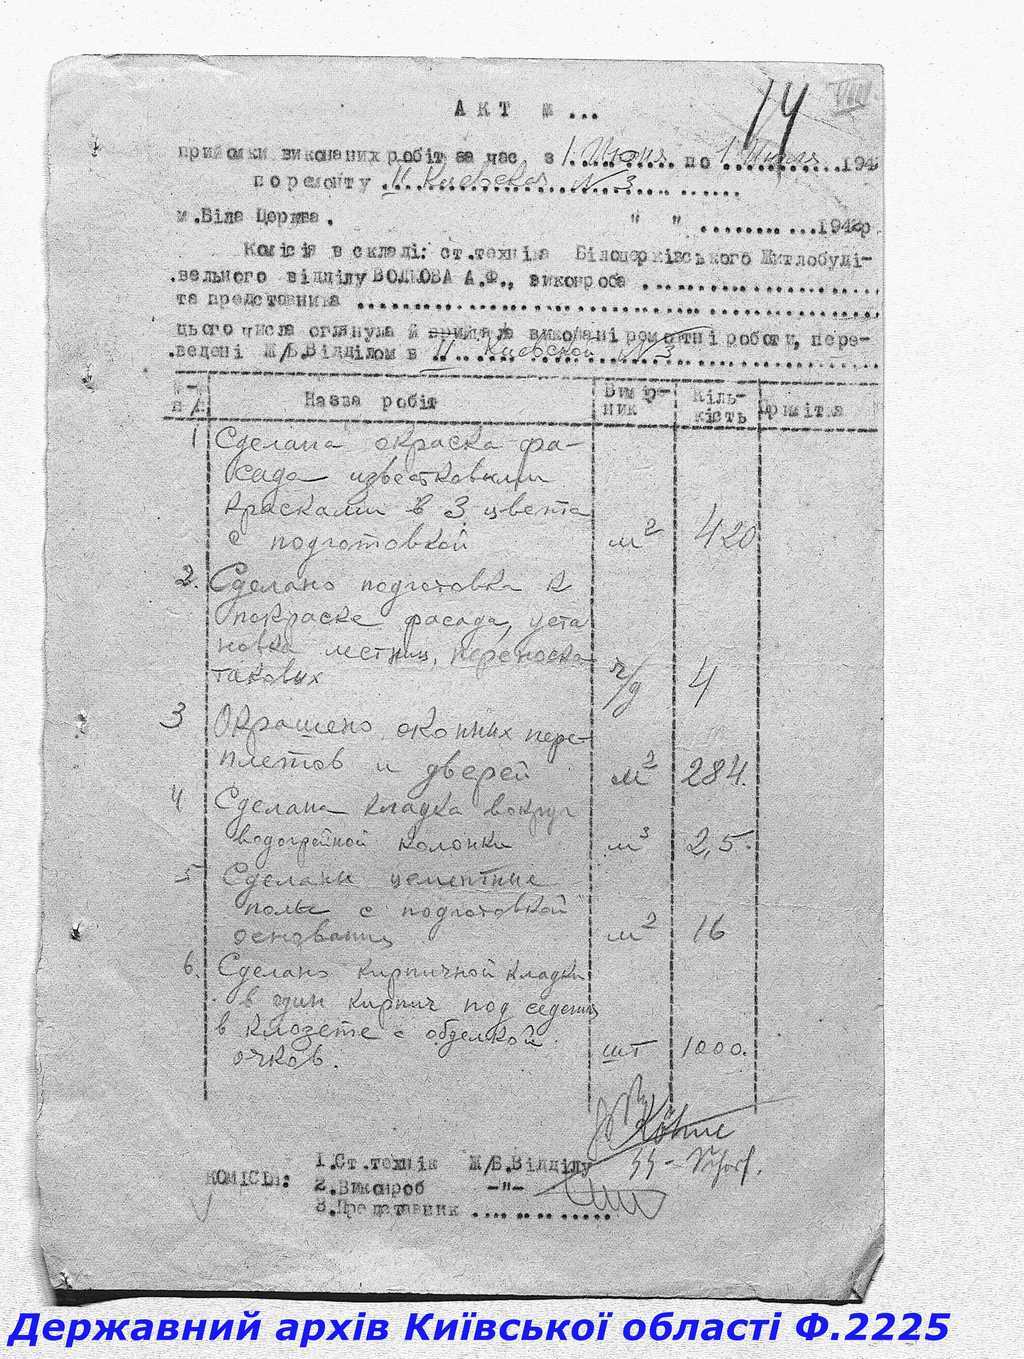 14 VIII
АКТ № ...
прийомки виконаних робіт за час з 1 Июня по 1 Июля 194
по ремонту II Киевская N 3
м.Біла Церква. " " ........ 1942р
Комісія в складі: ст.техніка Білоцерківського Житлобуді-
вельного відділу ВОЛКОВА А.Ф., виконроба ........
та представника ........
цього числа оглянула й прийняла виконані ремонтні роботи, пере-
ведені Ж/Б.Відділом в II Киевской N 3
№-№ п/п Назва робіт Вимір-ник Кіль-кість Примітка
1 Сделана окраска фа-
сада известковыми
красками в 3 цвета
с подготовкой м2 420
2. Сделано подготовка к
покраске фасада, уста
новка лестниц, переноска
таковых ч/д 4
3 Окрашено оконних пере-
плетов и дверей м2 284.
4 Сделана кладка вокруг
водогрейной колонки м3 2,5.
5 Сделаны цементные
полы с подготовкой
основания м2 16
6. Сделано кирпичной кладки
в один кирпич под седениц
в клозете с обделкой
очков. шт 1000.
Köhne
SS-
КОМІСІЯ: 1.Ст.технік Ж/Б.Відділу
2.Виконроб -"-
3.Представник ........
Державний архів Київської області Ф.2225